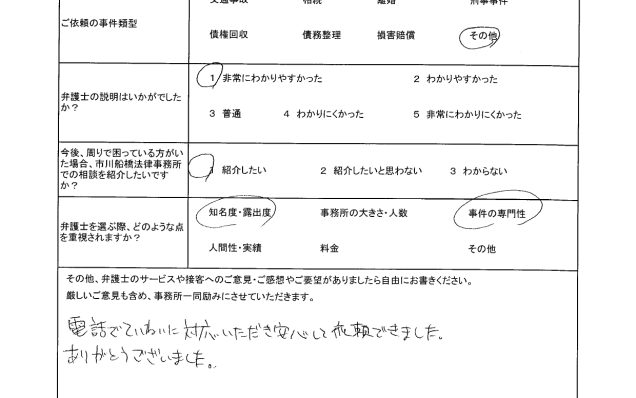 ご依頼の事件類型
交通事故 相続 離婚 刑事事件
債権回収 債務整理 損害賠償 その他
弁護士の説明はいかがでしたか?
1 非常にわかりやすかった 2 わかりやすかった
3 普通 4 わかりにくかった 5 非常にわかりにくかった
今後、周りで困っている方がい
た場合、市川船橋法律事務所
での相談を紹介したいです
か?
1 紹介したい 2 紹介したいと思わない 3 わからない
弁護士を選ぶ際、どのような点
を重視されますか?
知名度・露出度 事務所の大きさ・人数 事件の専門性
人間性・実績 料金 その他
その他、弁護士のサービスや接客へのご意見・ご感想やご要望がありましたら自由にお書きください。
厳しいご意見も含め、事務所一同励みにさせていただきます。
電話でていねいに対応いただき安心して依頼できました。
ありがとうございました。